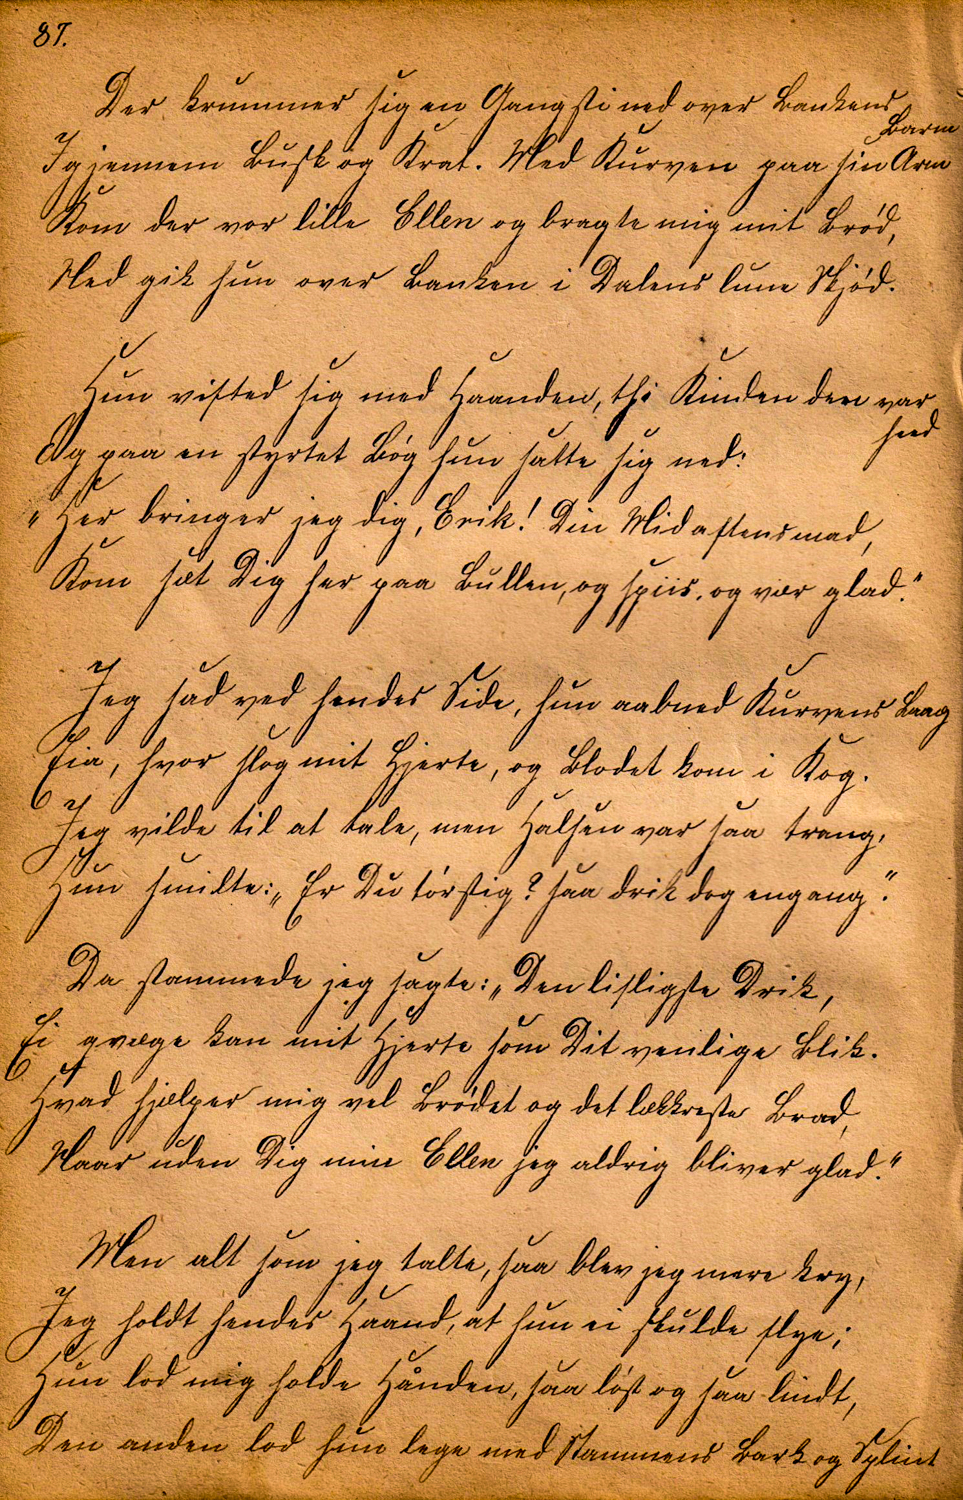 87.
Der krummer sig en Gangsti ned over Bankens
Barm
Igjennem Busk og Krat. Med Kurven paa sin Arm
Kom der vor lille Ellen og bragte mig mit Brød,
Ned gik hun over Banken i Dalens lune Skjød.
Hun visted sig med Haanden, thi Kinden den var
heed
Og paa en styrtet Bøg hun satte sig ned:
"Her bringer jeg dig, Erik! Din Midaftensmad,
Kom sæt Dig her paa Bullen, og spiis, og vær glad."
Jeg sad ved hendes Side, hun aabned Kurvens Laag
Eia, hvor slog mit Hjerte, og Blodet kom i Kog.
Jeg vilde til at tale, men Halsen var saa trang,
Hun smilte: „Er Du tørstig? saa drik dog engang".
Da stammede jeg sagte: „Den lifligste Drik,
Ei qvæge kan mit Hjerte som Dit venlige Blik.
Hvad hjælper mig vel Brødet og det lækkreste Brad,
Naar uden Dig min Ellen jeg aldrig bliver glad."
Men alt som jeg talte, saa blev jeg mere kry,
Jeg holdt hendes Haand, at hun ei skulde flye;
Hun lod mig holde Hånden, saa løst og saa lindt,
Den anden lod hun lege med Stammens Bark og Splint